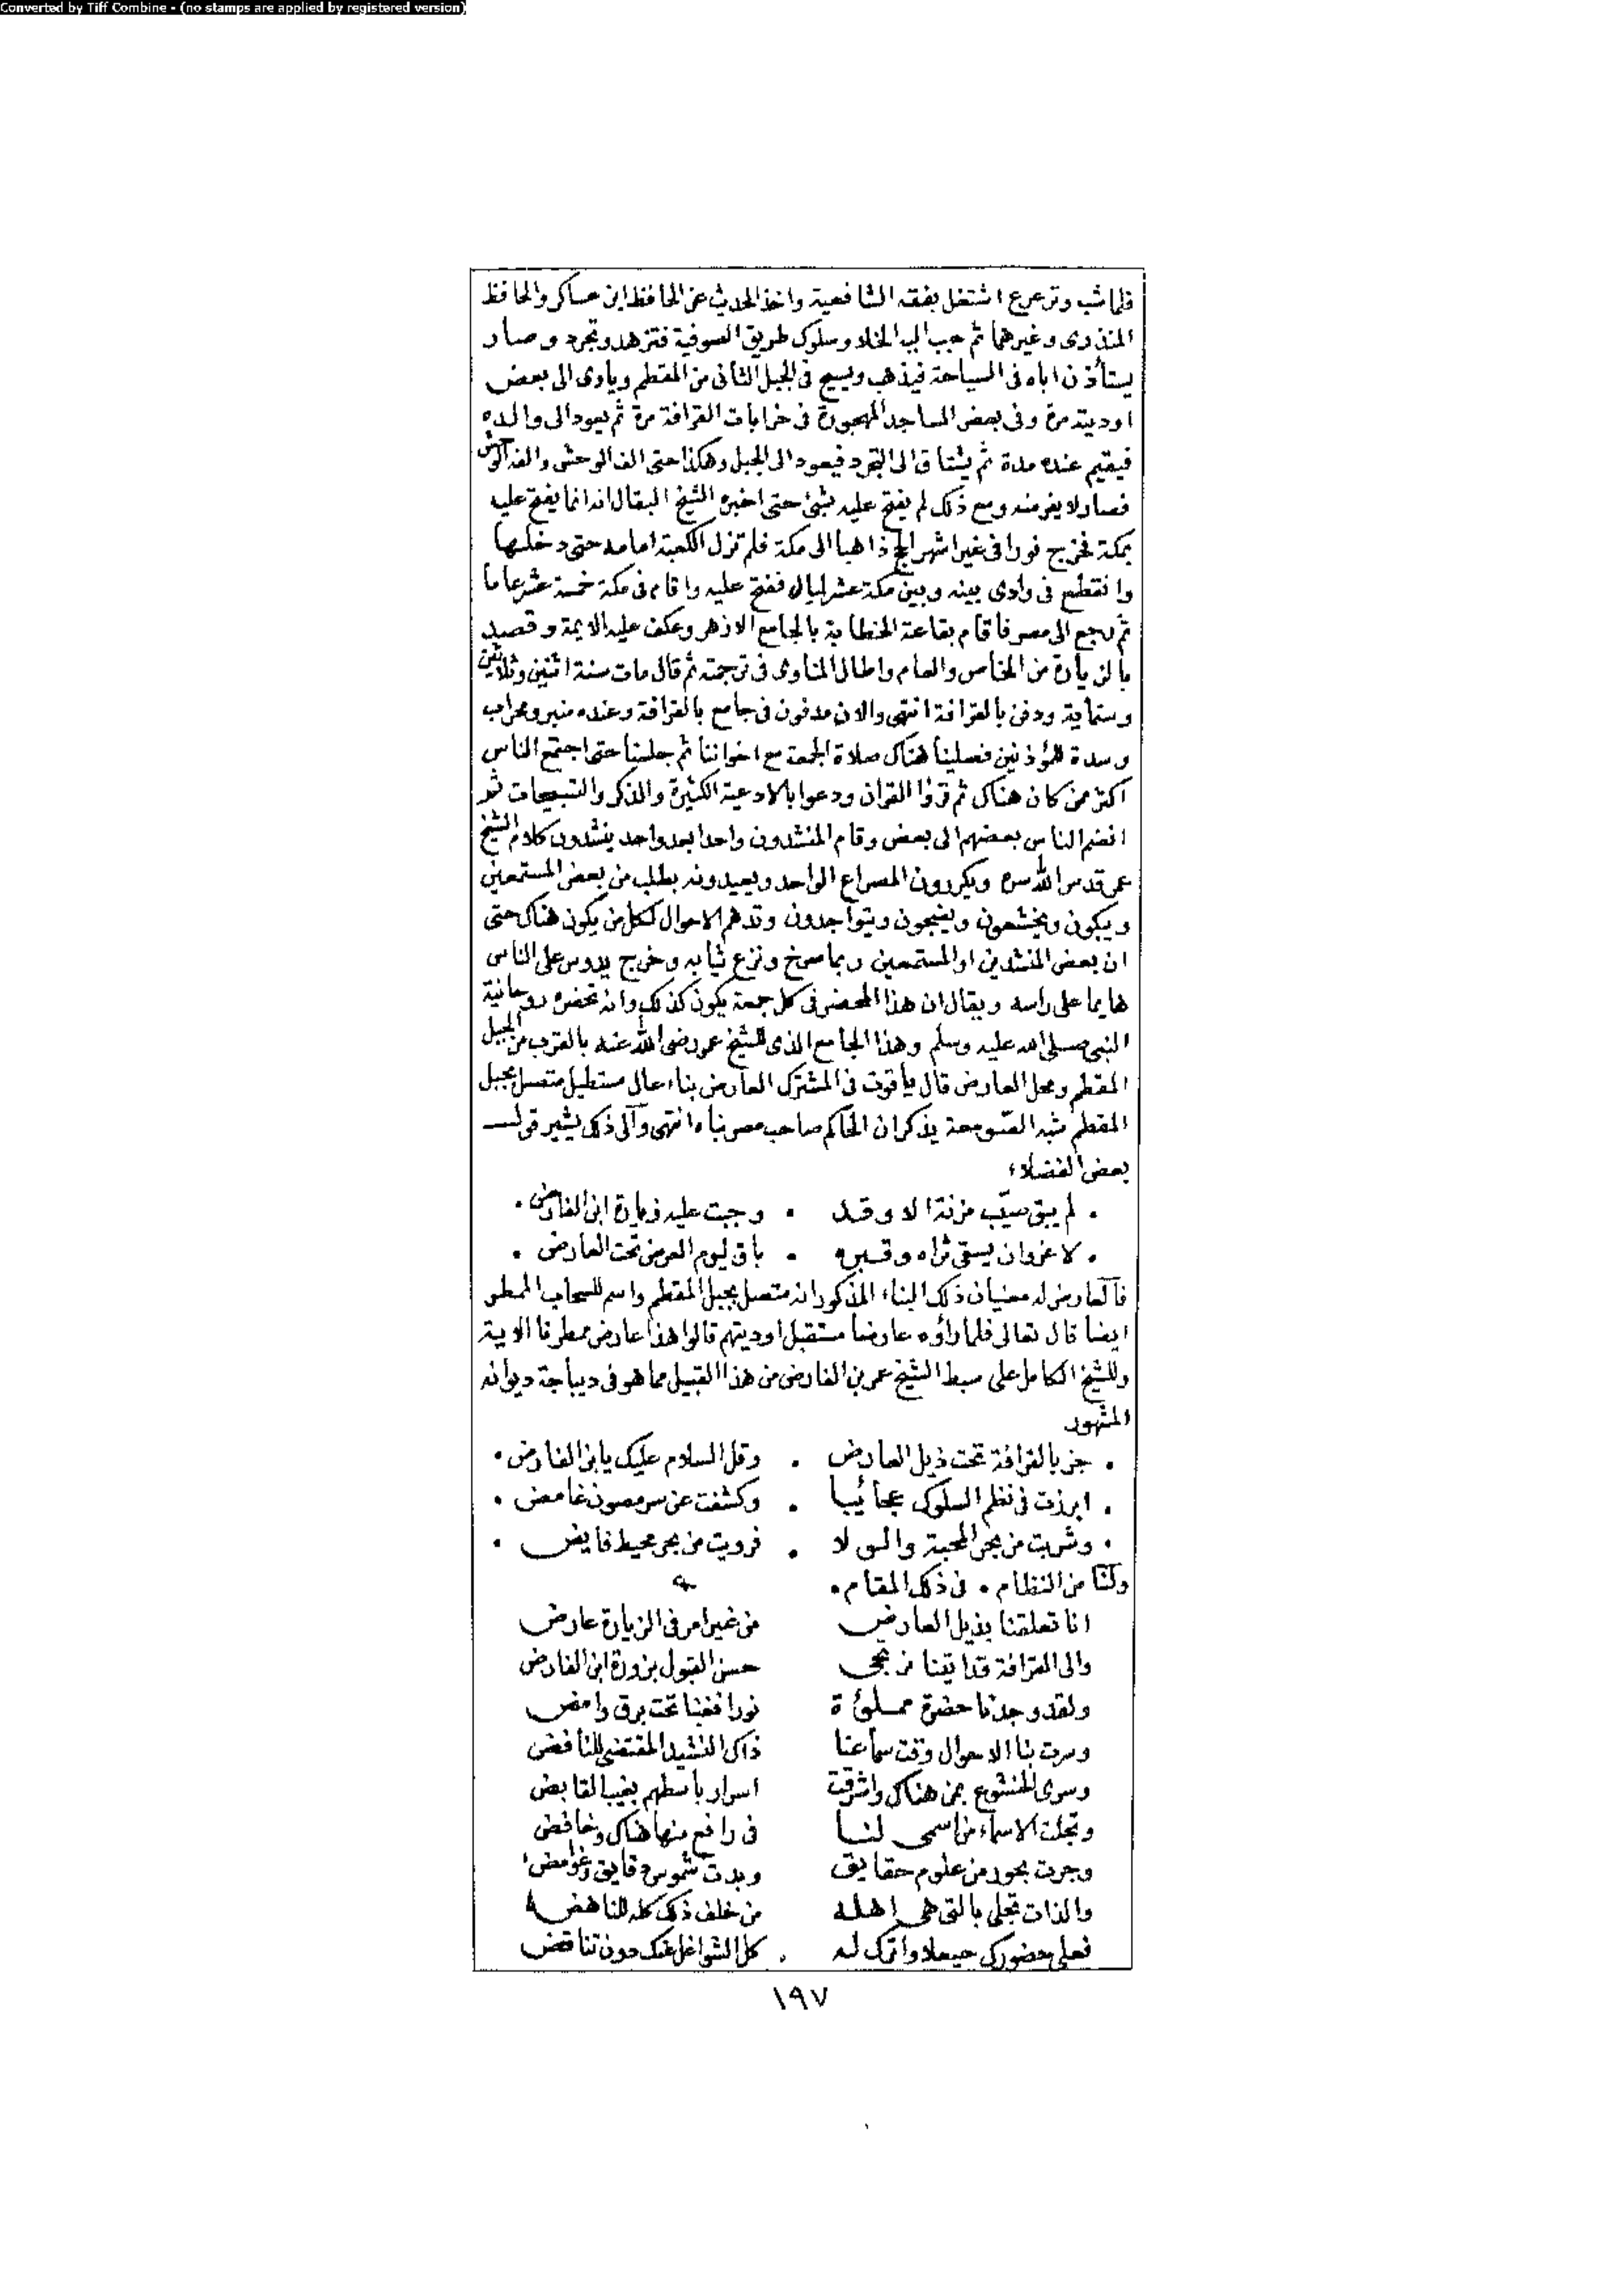 Converted by Tiff Combine - (no stamps are applied by registered version)
فلما شب وترعرع اشتغل بفقه الشافعية واخذ الحديث عن الحافظ ابن عساكر والحافظ
المنذرى وغيرهما ثم حبب اليه الخلا وسلوك طريق الصوفية فتزهد وتجرد وصار
يستأذن اباه فى السياحة فيذهب ويسيح فى الجبل الثانى من المقطم وياوى الى بعض
اوديته مرة وفى بعض المساجد المهجورة فى خرابات القرافة مرة ثم يعود الى والده
فيقيم عنده مدة ثم يشتاق الى التجرد فيعود الى الجبل وهكذا حتى الف الوحش والفه الوحش
فصار لا يفر منه ومع ذلك لم يفتح عليه بشئ حتى اخبره الشيخ البقال انه انما يفتح عليه
بمكة فخرج فورا فى غير اشهر الحج ذاهبا الى مكة فلم تزل الكعبة امامه حتى دخلها
وانقطع فى وادى بينه وبين مكة عشر ليال ففتح عليه واقام فى مكة خمسة عشر عاما
ثم رجع الى مصر فاقام بقاعة الخطابة بالجامع الازهر وعكف عليه الايمة وقصد
بالزيارة من الخاص والعام واطال المناوى فى ترجمته ثم قال مات سنة اثنين وثلاثين
وستماية ودفن بالقرافة انتهى والان مدفون فى جامع بالقرافة وعنده منبر ومحراب
وسدة للمؤذنين فصلينا هناك صلاة الجمعة مع اخواننا ثم جلسنا حتى اجتمع الناس
اكثر ممن كان هناك ثم قرؤا القران ودعوا بالادعية الكثيرة والذكر والتسبيحات ثم
انضم الناس بعضهم الى بعض وقام المنشدون واحدا بعد واحد ينشدون كلام الشيخ
عمر قدس الله سره ويكررون المصراع الواحد ويعيدونه بطلب من بعض المستمعين
ويبكون ويخشعون ويضجون ويتواجدون وتدهم الاحوال لكل من يكون هناك حتى
ان بعض المنشدين او المستمعين ربما صرخ ونزع ثيابه وخرج يدوس على الناس
هايما على راسه ويقال ان هذا المحضر فى كل جمعة يكون كذلك وانه تحضره روحانية
النبى صلى الله عليه وسلم وهذا الجامع الذى للشيخ عمر رضى الله عنه بالقرب من الجبل
المقطم ومحل العارض قال ياقوت فى المشترك العارض بناء عال مستطيل متصل بجبل
المقطم شبه الصومعة يذكر ان الحاكم صاحب مصر بناه انتهى وآلى ذلك يشير قول
بعض الفضلاء
. لم يبق صيّب مزنة الا وقد . وجبت عليه زيارة ابن الفارض .
. لا غرو ان يسقى ثراه وقبره . باق ليوم العرض تحت العارض .
فآلعارض له معنيان ذلك البناء المذكور انه متصل بجبل المقطم واسم للسحاب الممطر
ايضا قال تعالى فلما رأوه عارضا مستقبل اوديتهم قالوا هذا عارض ممطرنا الاية
وللشيخ الكامل على سبط الشيخ عمر بن الفارض من هذا القبيل مما هو فى ديباجة ديوانه
المشهور
. جز بالقرافة تحت ذيل العارض . وقل السلام عليك يا ابن الفارض .
. ابرزت فى نظم السلوك عجائيبا . وكشفت عن سر مصون غامض .
. وشربت من بحر المحبة والولا . فرويت من بحر محيط فايض .
ولنا من النظام . فى ذلك المقام .
انا تعلقنا بذيل العارض من غير امر فى الزيارة عارض
والى القرافة قد اتينا نرتجى حسن القبول بزورة ابن الفارض
ولقد وجدنا حضرة مملؤة نورا فغبنا تحت برق وامض
وسرت بنا الاحوال وقت سماعنا ذاك النشيد المقتضى للنافض
وسرى الخشوع بمن هناك واشرقت اسرار باسطهم بغيب القابض
وتجلت الاسماء من اسمى لنا فى رافع منها هناك وخافض
وجرت بحور من علوم حقايق وبدت شموس دقايق وغوامض
والذات تجلى بالتى هى اهله من خلف ذلك كله للناهض
فعلى حضورك حيعلا واترك له . كل الشواغل عنك دون تناقض
١٩٧